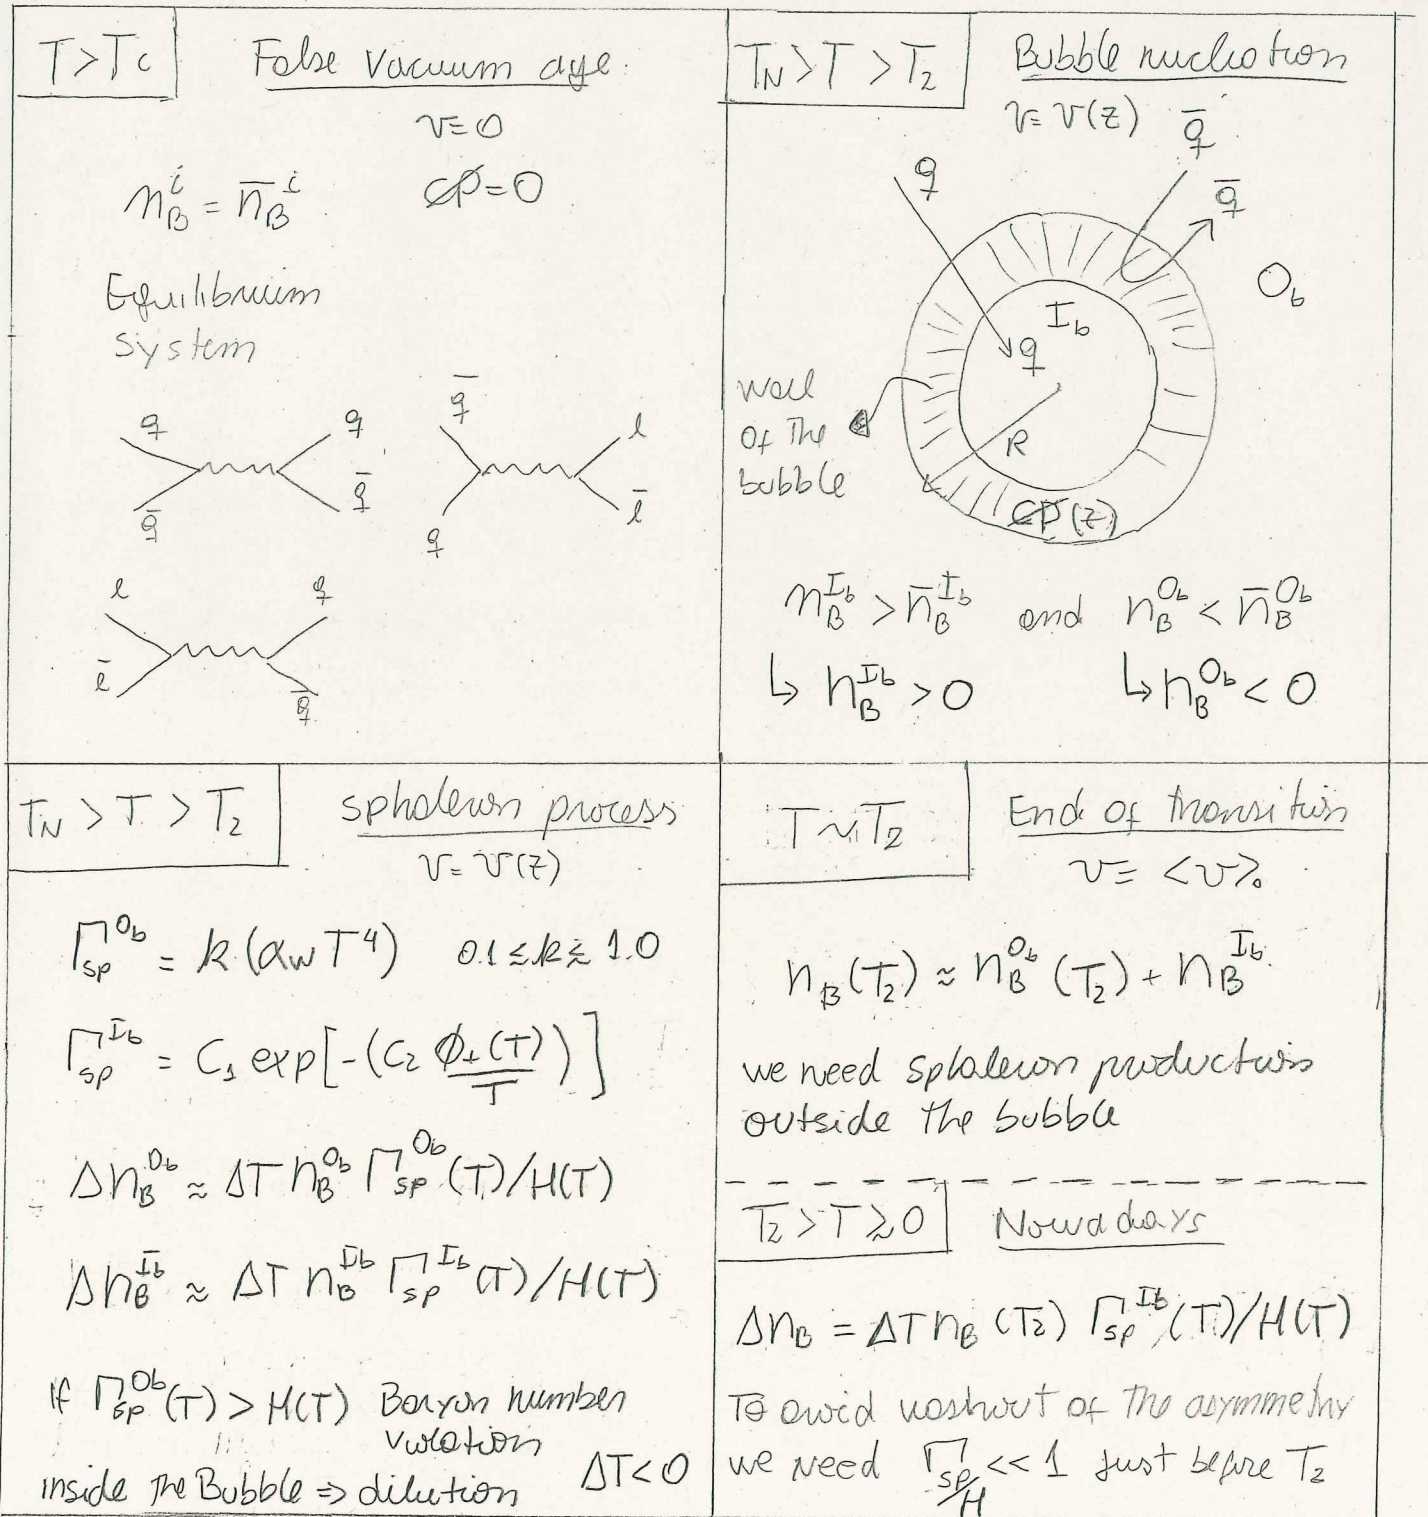 T>Tc
False Vacuum age:
v=0
n_B^i = n̄_B^i
C̸P̸=0
Equilibrium
System
q
q̄
q
q̄
q̄
q
l
l̄
l
l̄
q
q̄
T_N>T>T_2
Bubble nucleation
v=v(z)
q
q̄
q̄
I_b
q
O_b
wall
of the
bubble
R
C̸P̸(z)
n_B^{I_b} > n̄_B^{I_b} and n_B^{O_b} < n̄_B^{O_b}
↳ n_B^{I_b} > 0 ↳ n_B^{O_b} < 0
T_N > T > T_2
sphaleron process
v=v(z)
Γ_sp^{O_b} = k(α_w T^4) 0.1 ≤ k ≲ 1.0
Γ_sp^{I_b} = C_1 exp[-(C_2 ϕ_+(T)/T)]
Δn_B^{O_b} ≈ ΔT n_B^{O_b} Γ_sp^{O_b}(T)/H(T)
Δn_B^{I_b} ≈ ΔT n_B^{I_b} Γ_sp^{I_b}(T)/H(T)
If Γ_sp^{O_b}(T) > H(T) Baryon number
violation
inside the Bubble ⇒ dilution ΔT<0
T~T_2
End of transition
v= <v>_0
n_B(T_2) ≈ n_B^{O_b}(T_2) + n_B^{I_b}
we need sphaleron production
outside the bubble
T_2 > T ≳ 0
Nowadays
Δn_B = ΔT n_B(T_2) Γ_sp^{I_b}(T)/H(T)
To avoid washout of the asymmetry
we need Γ_sp/H << 1 just before T_2